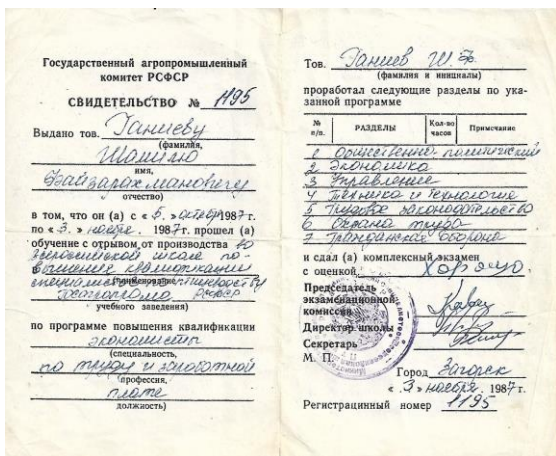 Государственный агропромышленный
комитет РСФСР
СВИДЕТЕЛЬСТВО № 1195
Выдано тов. Ганиеву
(фамилия,
Шамилю
имя,
отчество)
в том, что он (а) с «5.» октяб 1987 г.
по «3.» ноября. 1987 г. прошел (а)
обучение с отрывом от производства во
школе по-
вышения квалификации
(наименование
РСФСР
учебного заведения)
по программе повышения квалификации
экономисты
(специальность,
по труду и заработной
профессия,
плате
должность)
Тов. Ганиев Ш. Ф.
(фамилия и инициалы)
проработал следующие разделы по ука-
занной программе
№ п/п. РАЗДЕЛЫ Кол-во часов Примечание
1 Общественно-политический
2 Экономика
3 Управление
4 Техника и технология
5 Трудовое законодательство
6 Охрана труда
7 Гражданская оборона
и сдал (а) комплексный экзамен
с оценкой, хорошо.
Председатель
экзаменационной
комиссии
Директор школы
Секретарь
М. П.
Город Загорск
«3» ноября. 1987 г.
Регистрацинный номер 1195